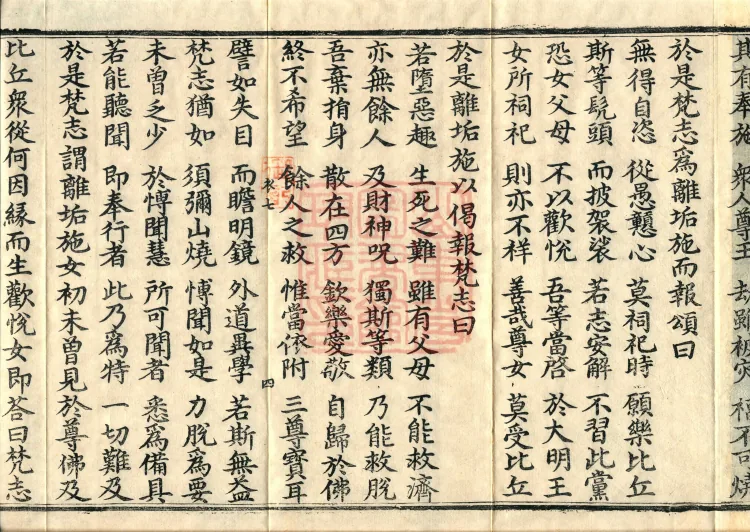 其有奉施 衆人尊王 劫雖被災 不可燒
於是梵志爲離垢施而報頌曰
無得自恣 從愚戇心 莫祠祀時 願樂比丘
斯等髡頭 而披袈裟 若志安解 不習此黨
恐女父母 不以歡悅 吾等當啓 於大明王
女所祠祀 則亦不祥 善哉尊女 莫受比丘
於是離垢施以偈報梵志曰
若墮惡趣 生死之難 雖有父母 不能救濟
亦無餘人 及財神呪 獨斯等類 乃能救脫
吾棄捐身 散在四方 欽樂愛敬 自歸於佛
終不希望 餘人之救 惟當依附 三尊寶耳
七
四
譬如失目 而瞻明鏡 外道異學 若斯無益
梵志猶如 須彌山燒 博聞如是 力脫爲要
未曾乏少 於博聞慧 所可聞者 悉爲備具
若能聽聞 即奉行者 此乃爲特 一切難及
於是梵志謂離垢施女初未曾見於尊佛及
比丘衆從何因縁而生歡悅女即答曰梵志